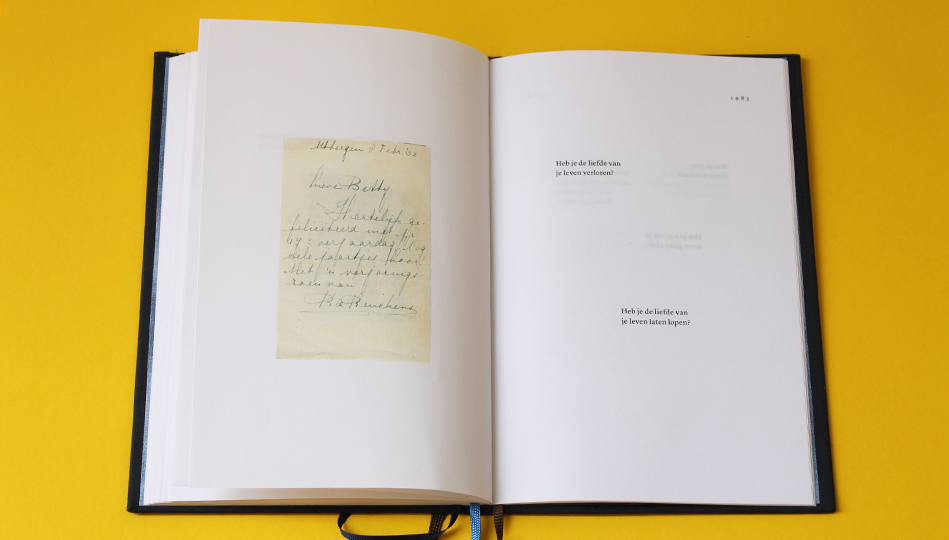 8 Febr '68
Lieve Betty
Hartelijk ge-
feliciteerd met je
verjaardag. Nog
vele jaartjes hoor!
Met 'n verjaarings-
zoen van
1983
Heb je de liefde van
je leven verloren?
Heb je de liefde van
je leven laten lopen?